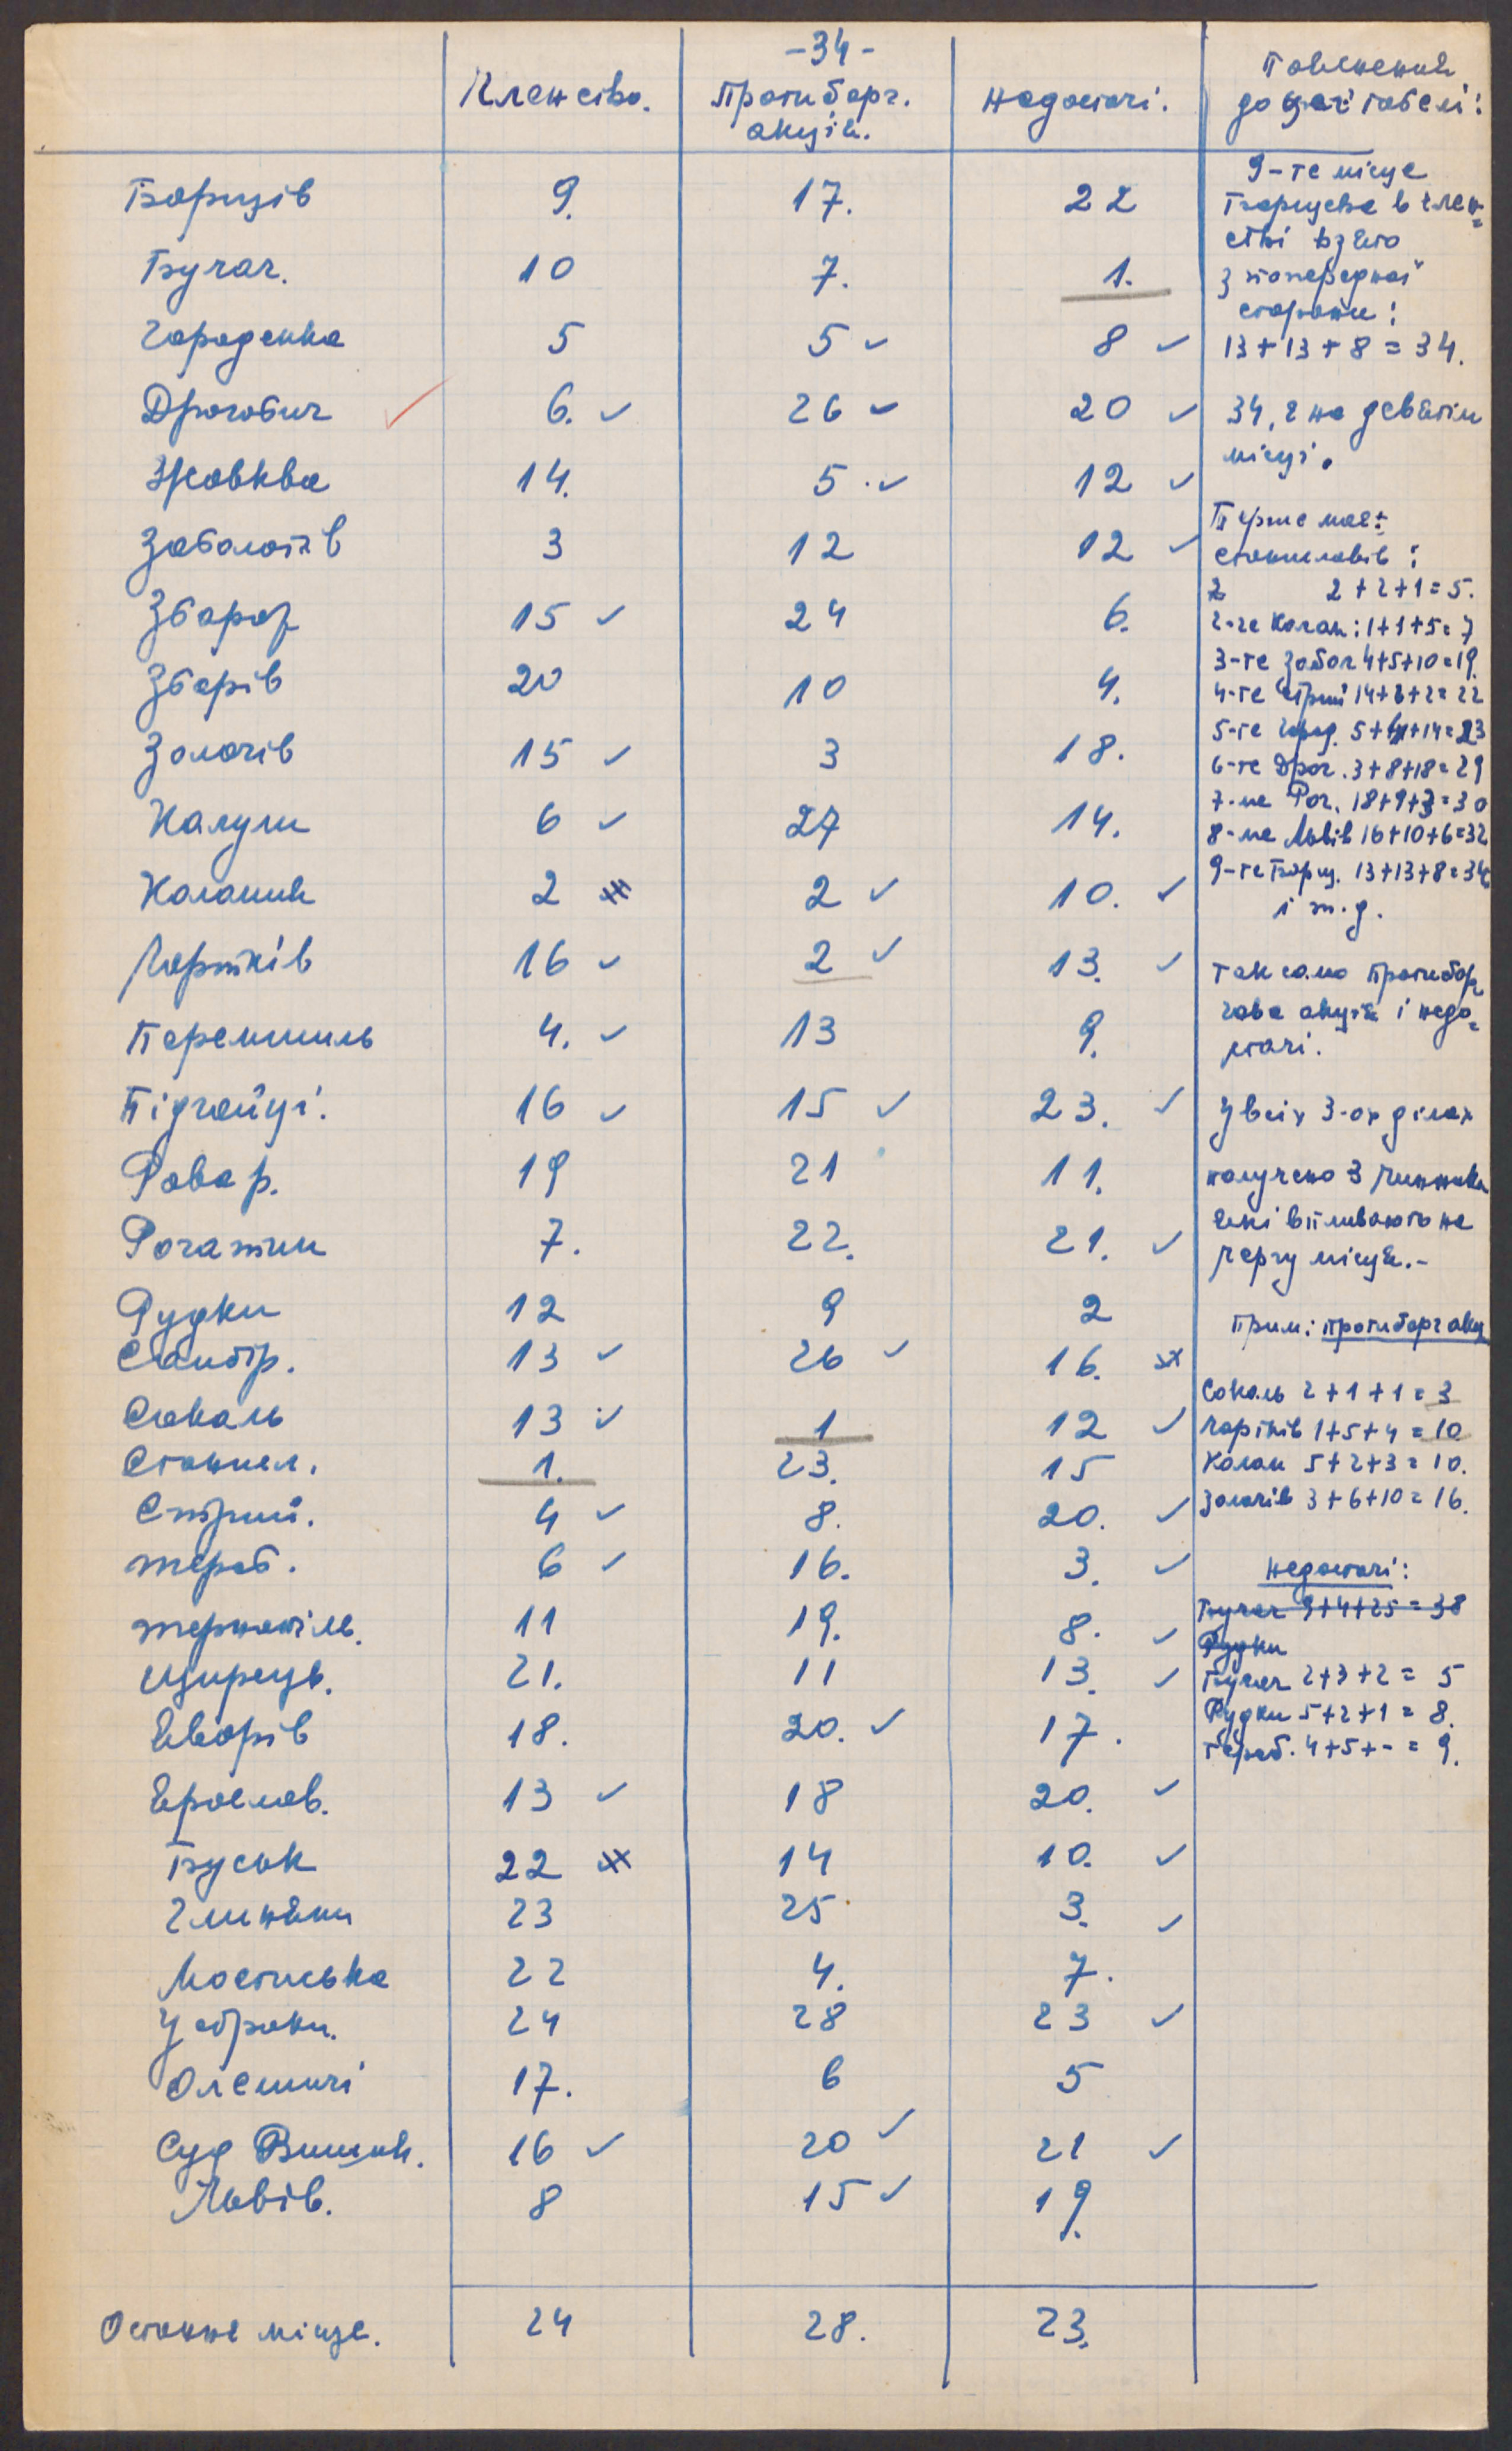 -34-
Членство. Протиборг. акція. Недостачі. Пояснення до цеї табелі:
Борщів 9. 17. 22
Бучач. 10 7. 1.
Городенка 5 5 ✓ 8 ✓
Дрогобич ✓ 6. ✓ 26 ✓ 20 ✓
Жовква 14. 5. ✓ 12 ✓
Заболотів 3 12 12 ✓
Збараж 15 ✓ 24 6.
Зборів 20 10 4.
Золочів 15 ✓ 3 18.
Калуш 6 ✓ 27 14.
Коломия 2 2 ✓ 10. ✓
Чортків 16 ✓ 2 ✓ 13. ✓
Перемишль 4. ✓ 13 9.
Підгайці. 16 ✓ 15 ✓ 23. ✓
Рава р. 19 21 11.
Рогатин 7. 22. 21. ✓
Рудки 12 9 2
Самбір. 13 ✓ 26 ✓ 16.
Сокаль 13 ✓ 1 12 ✓
Станисл. 1. 23. 15
Стрий. 4 ✓ 8. 20. ✓
Тереб. 6 ✓ 16. 3. ✓
Тернопіль. 11 19. 8. ✓
Щирець. 21. 11 13. ✓
Яворів 18. 20. ✓ 17.
Ярослав. 13 ✓ 18 20. ✓
Буськ 22 14 10. ✓
Глиняни 23 25 3. ✓
Мостиська 22 4. 7.
Устрики. 24 28 23 ✓
Олешичі 17. 6 5
Суд Вишня. 16 ✓ 20 ✓ 21 ✓
Львів. 8 15 ✓ 19.
Останнє місце. 24 28. 23.
9-те місце
Борщева в член=
стві взято
з попередної
сторони:
13+13+8=34.
34, є на девятім
місці.
Перше має:
Станиславів:
2+2+1=5.
2-ге Колом: 1+1+5=7
3-те Забол 4+5+10=19.
4-те Стрий 14+6+2=22
5-те Город. 5+4+14=23
6-те Дрог. 3+8+18=29
7-ме Рог. 18+9+3=30
8-ме Львів 16+10+6=32
9-те Борщ. 13+13+8=34
і т.д.
Так само протибор
гова акція і недо=
стачі.
У всіх 3-ох ділах
получено 3 чинники
які впливають на
чергу місця.-
Прим: протиборг акц
Сокаль 2+1+1=3
Чортків 1+5+4=10
Колом 5+2+3=10.
Золочів 3+6+10=16.
Недостачі:
Бучач 9+4+25=38
Рудки
Бучач 2+3+2= 5
Рудки 5+2+1= 8.
Тереб. 4+5+-= 9.